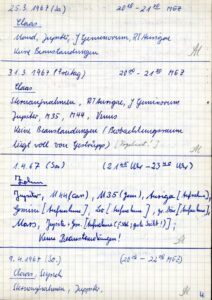 25.3.1967 (Sa) 20°° - 21°° MEZ
Claas
Mond, Jupiter, J Geminorum, RT Aurigae
Keine Beanstandungen
31.3.1967 (Freitag) 20°° - 21°° MEZ
Claas
Sternaufnahmen, RT Aurigae, J Geminorum
Jupiter, M35, M44, Venus
Keine Beanstandungen (Beobachtungsraum
liegt voll von Gestrüpp)
1.4.67 (Sa) (21°° Uhr - 23°° Uhr)
Jupiter, M44 (Can), M35 (Gem), Auriga [Aufnahme],
Gemini [Aufnahme], Leo [Aufnahme],
Mars, Jupiter + Gem. [Aufnahme
Keine Beanstandungen!
9.4.1967 (So.) 20°° - 22°° MEZ
Claas,
Sternaufnahmen, Jupiter.